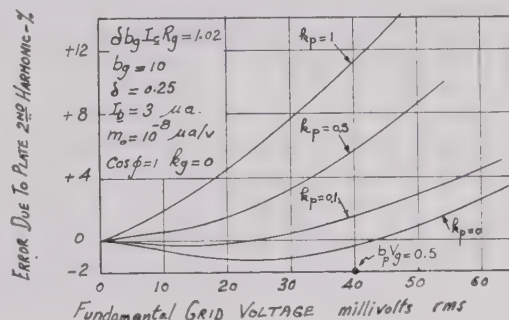 ERROR DUE TO PLATE 2ND HARMONIC-%
+12
+8
+4
0
-2
δbgIcRg=1.02
bg=10
δ=0.25
Ib=3 μa.
mo=10⁻⁸ μa/v
Cosφ=1 kg=0
kp=1
kp=0.5
kp=0.1
kp=0
bpVg=0.5
0 10 20 30 40 50 60
Fundamental GRID VOLTAGE millivolts rms